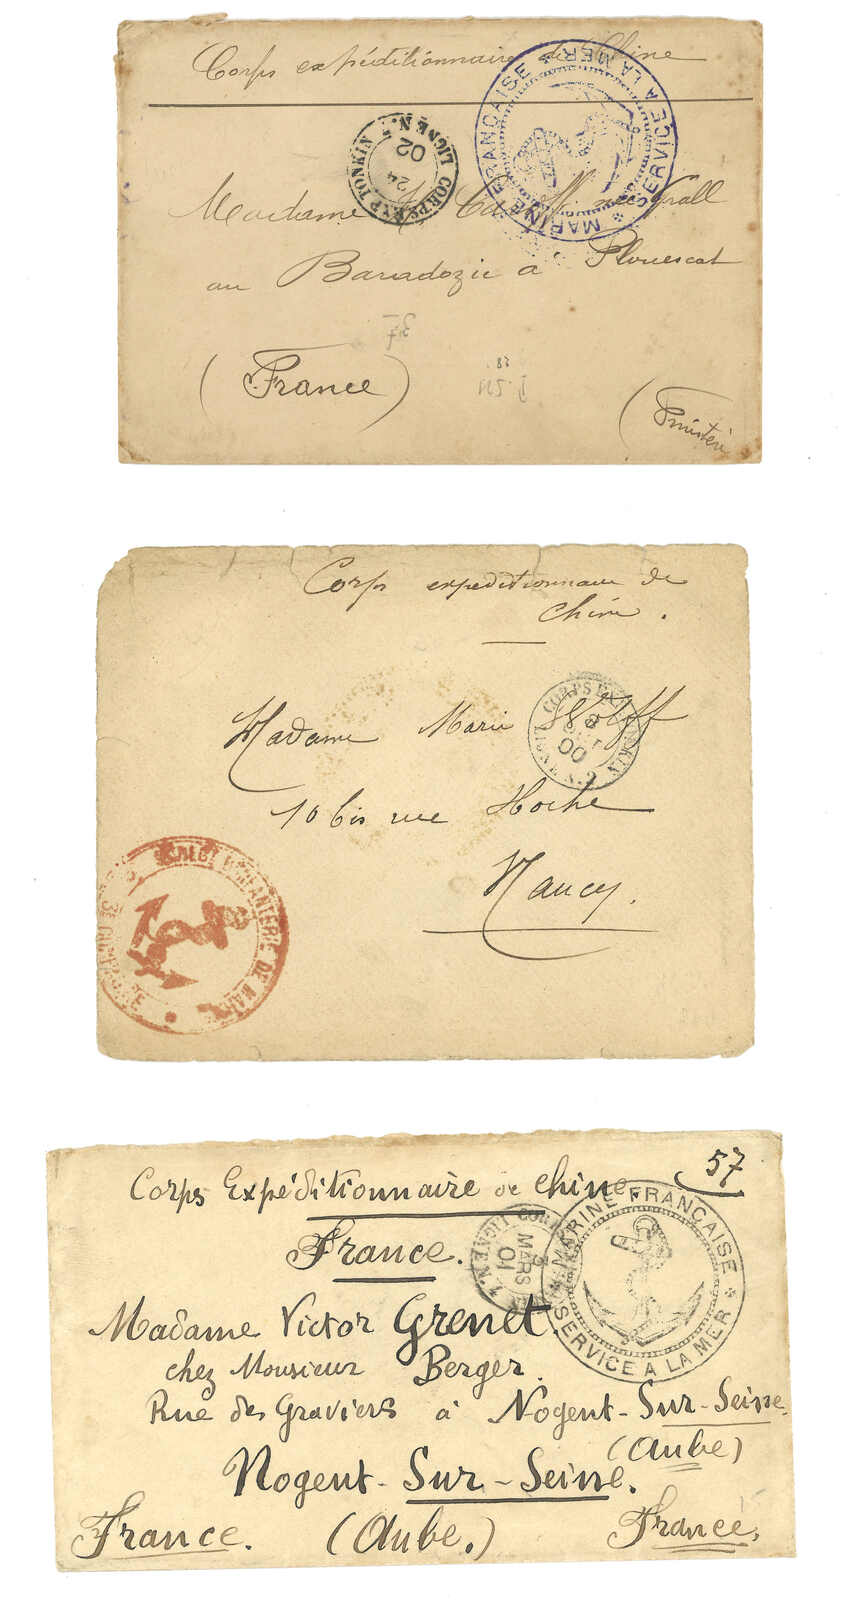 Corps expéditionnaire de Chine
MARINE FRANÇAISE * SERVICE A LA MER *
CORPS EXP TONKIN
LIGNE N
24
02
Madame née Grall
au à Plouescat
(France)
(Finistère
Corps expeditionnaire de
Chine.
CORPS EXP TONKIN
LIGNE N
00
Madame Marie Wolff
10 bis rue Hoche
Nancy.
INFANTERIE DE MARINE
57
Corps Expéditionnaire de Chine
France.
LIGNE N
MARS
01
MARINE FRANÇAISE * SERVICE A LA MER *
Madame Victor Grenet.
chez Monsieur Berger.
Rue des Graviers à Nogent-Sur-Seine.
(Aube)
Nogent-Sur-Seine.
France. (Aube.) France.